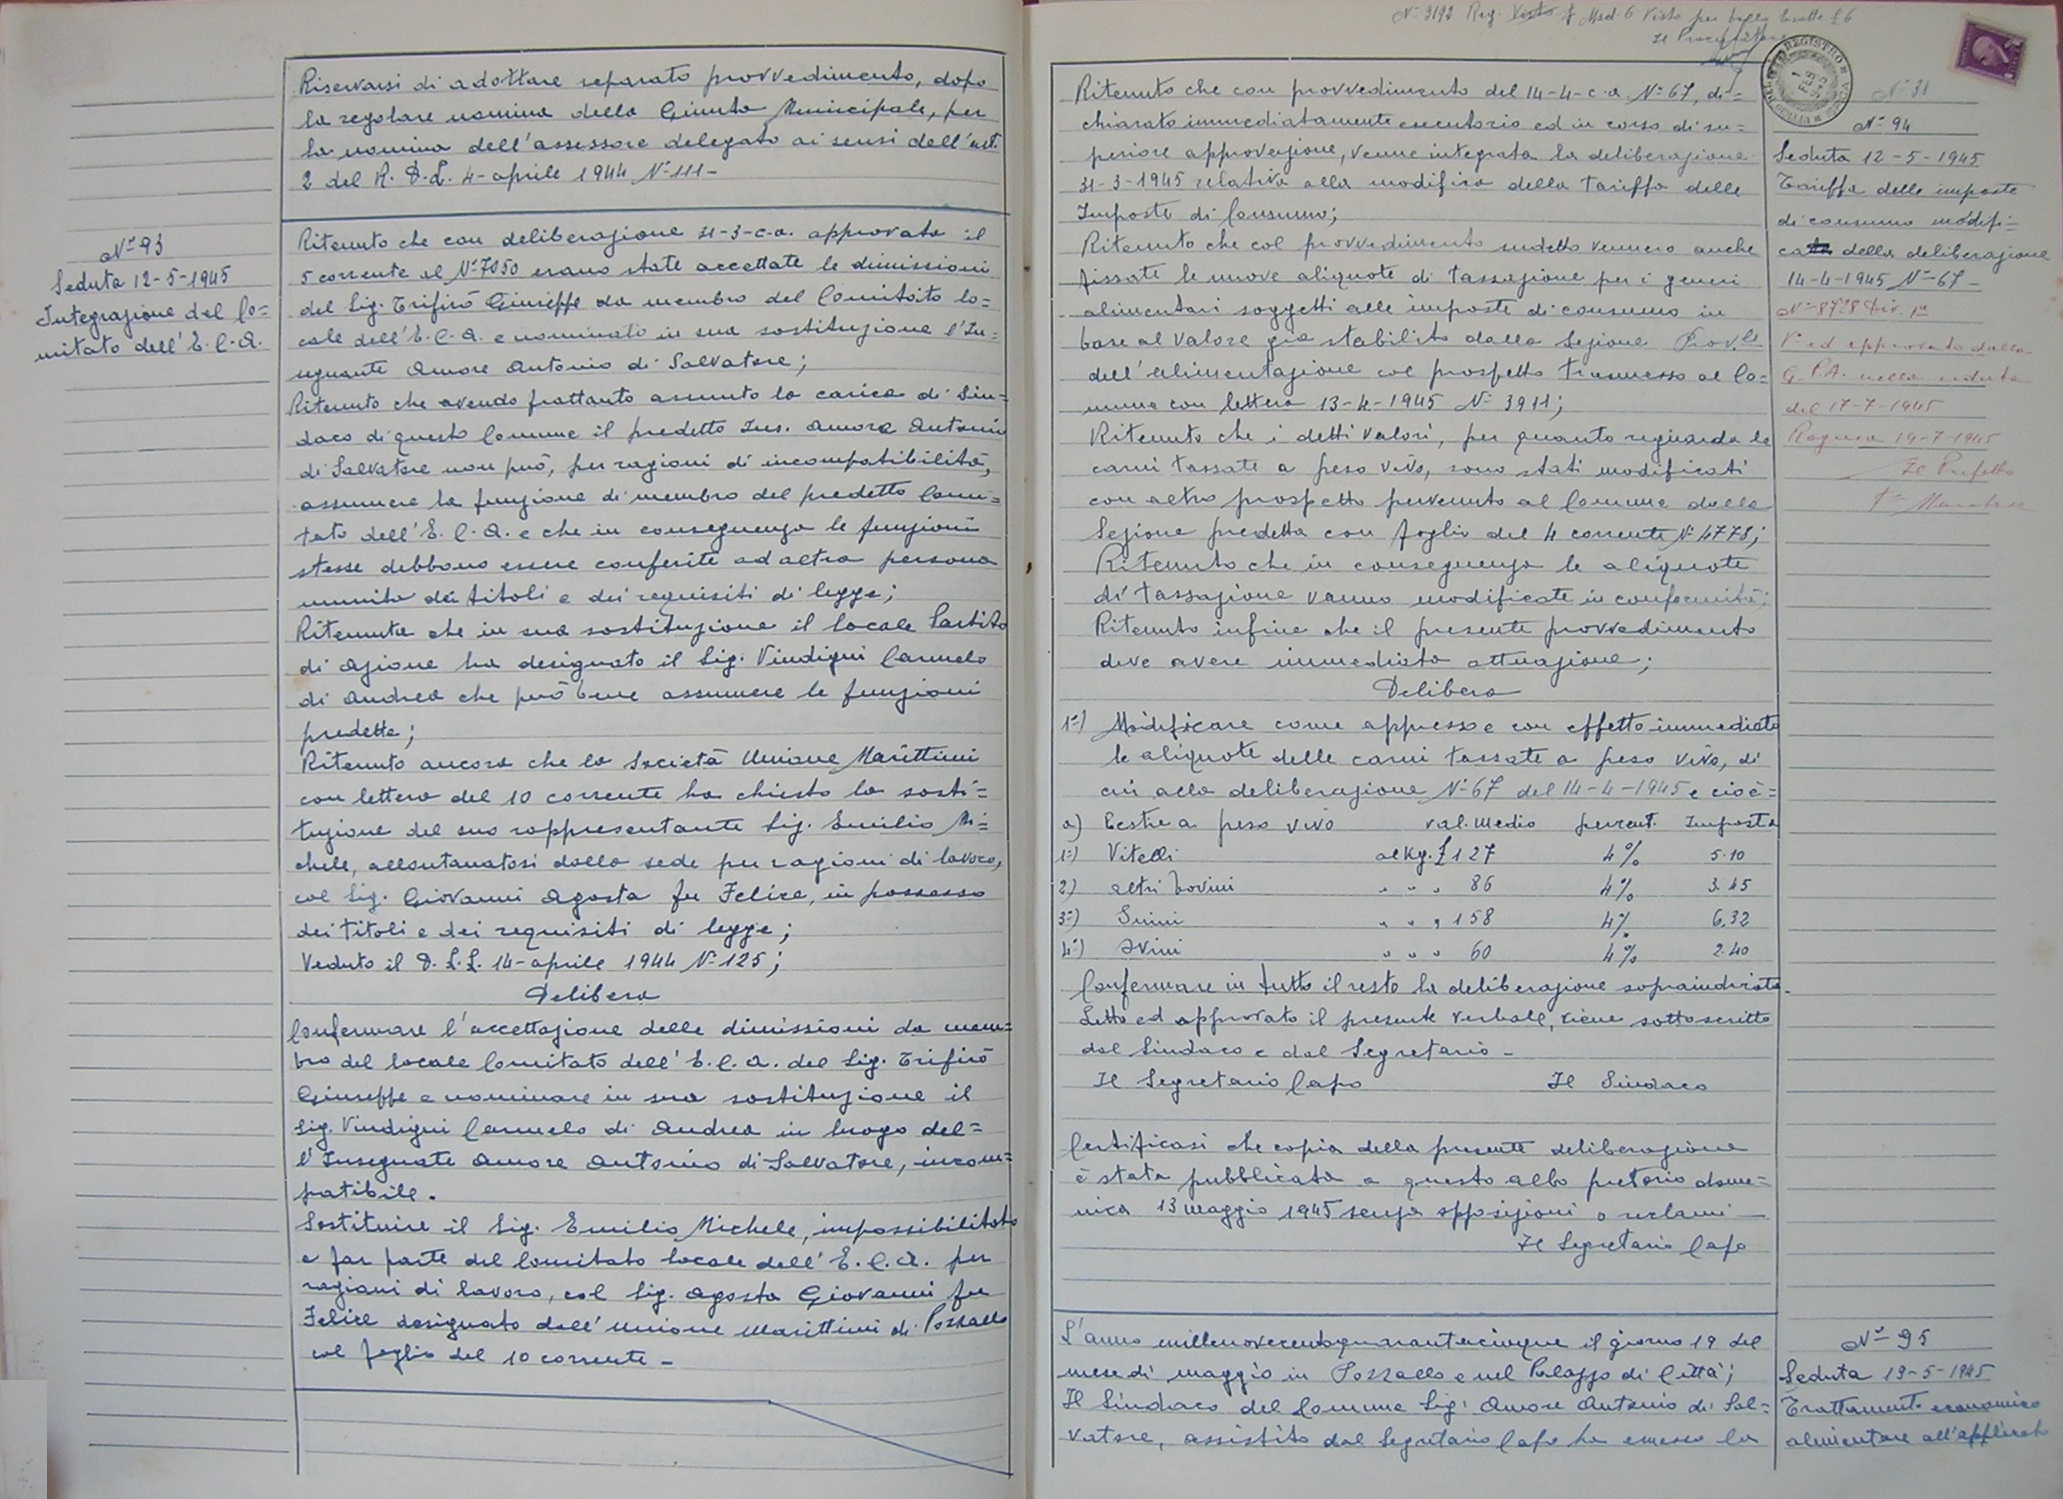 Riservarsi di adottare separato provvedimento, dopo
la regolare nomina della Giunta Municipale, per
la nomina dell'assessore delegato ai sensi dell'art.
2 del R. D. L. 4-aprile 1944 N° 111-
N° 93
Seduta 12-5-1945
Integrazione del Co=
mitato dell'E.C.A.
Ritenuto che con deliberazione 31-3-c.a. approvata il
5 corrente al N° 7050 erano state accettate le dimissioni
del Sig. Trifirò Giuseppe da membro del Comitato lo=
cale dell'E.C.A. e nominato in sua sostituzione l'In=
segnante Amore Antonio di Salvatore;
Ritenuto che avendo frattanto assunto la carica di Sin=
daco di questo Comune il predetto Ins. Amore Antonio
di Salvatore non può, per ragioni di incompatibilità,
assumere la funzione di membro del predetto Comi=
tato dell'E.C.A. e che in conseguenza le funzioni
stesse debbono essere conferite ad altra persona
munita dei titoli e dei requisiti di legge;
Ritenuto che in sua sostituzione il locale Partito
di Azione ha designato il Sig. Vindigni Carmelo
di Andrea che può bene assumere le funzioni
predette;
Ritenuto ancora che la Società Unione Marittimi
con lettera del 10 corrente ha chiesto la sosti=
tuzione del suo rappresentante Sig. Emilio Mi=
chele, allontanatosi dalla sede per ragioni di lavoro,
col Sig. Giovanni Agosta fu Felice, in possesso
dei titoli e dei requisiti di legge;
Veduto il D.L.L. 14-aprile 1944 N° 125;
Delibera
Confermare l'accettazione delle dimissioni da mem=
bro del locale Comitato dell'E.C.A. del Sig. Trifirò
Giuseppe e nominare in sua sostituzione il
Sig. Vindigni Carmelo di Andrea in luogo del=
l'Insegnate Amore Antonio di Salvatore, incom=
patibile.
Sostituire il Sig. Emilio Michele, impossibilitato
a far parte del Comitato locale dell'E.C.A. per
ragioni di lavoro, col Sig. Agosta Giovanni fu
Felice designato dall'Unione Marittimi di Pozzallo
col foglio del 10 corrente -
N° 3192 Reg. Visto Mod. 6 Visto per bollo esatte £ 6
Il Procuratore
N° 94
Seduta 12-5-1945
Tariffa delle imposte
di consumo modifi=
cata della deliberazione
14-4-1945 N° 67-
N° 8728 Div. 1a
V° ed approvato dalla
G.P.A. nella seduta
del 17-7-1945
Ragusa 19-7-1945
Il Prefetto
Ritenuto che con provvedimento del 14-4-c.a. N° 67, di=
chiarato immediatamente esecutorio ed in corso di su=
periore approvazione, venne integrata la deliberazione
31-3-1945 relativa alla modifica della tariffa delle
Imposte di Consumo;
Ritenuto che col provvedimento sudetto vennero anche
fissate le nuove aliquote di tassazione per i generi
alimentari soggetti alle imposte di consumo in
base al valore già stabilito dalla Sezione Prov.le
dell'Alimentazione col prospetto trasmesso al Co=
mune con lettera 13-4-1945 N° 3911;
Ritenuto che i detti valori, per quanto riguarda le
carni tassate a peso vivo, sono stati modificati
con altro prospetto pervenuto al Comune dalla
Sezione predetta con foglio del 4 corrente N° 4778;
Ritenuto che in conseguenza le aliquote
di tassazione vanno modificate in conformità;
Ritenuto infine che il presente provvedimento
deve avere immediata attuazione;
Delibera
1°) Modificare come appresso e con effetto immediato
le aliquote delle carni tassate a peso vivo, di
cui alla deliberazione N° 67 del 14-4-1945 e cioè=
a) Bestie a peso vivo val. medio percent. Imposta
1°) Vitelli al Kg. £ 127 4% 5.10
2) altri bovini " " " 86 4% 3.45
3°) Suini " " " 158 4% 6,32
4°) Ovini " " " 60 4% 2.40
Confermare in tutto il resto la deliberazione sopraindicata.
Letto ed approvato il presente verbale, viene sottoscritto
dal Sindaco e dal Segretario -
Il Segretario Capo Il Sindaco
Certificasi che copia della presente deliberazione
è stata pubblicata a questo albo pretorio dome=
nica 13 maggio 1945 senza opposizioni o reclami -
Il Segretario Capo
N° 95
Seduta 19-5-1945
Trattamento economico
alimentare all'applicato
L'anno millenovecentoquarantacinque il giorno 19 del
mese di maggio in Pozzallo e nel Palazzo di Città;
Il Sindaco del Comune Sig. Amore Antonio di Sal=
vatore, assistito dal Segretario Capo ha emesso la